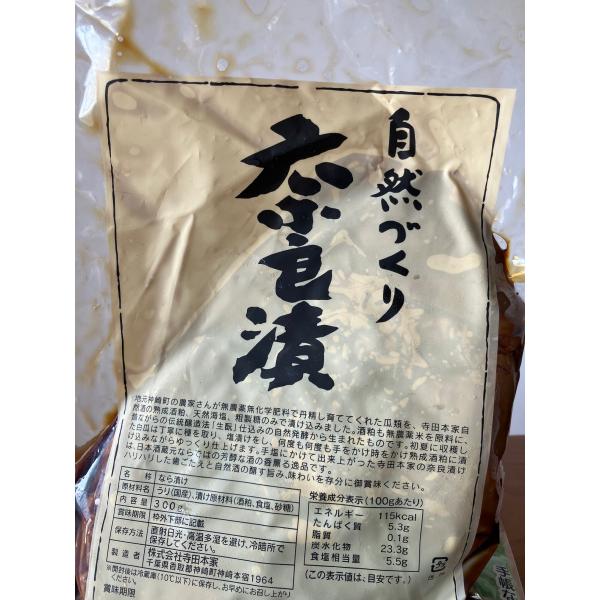 自然づくり
奈良漬
地元神崎町の農家さんが無農薬無化学肥料で丹精し育ててくれた瓜類を、寺田本家自
然酒の熟成酒粕、天然海塩、粗製糖のみで漬け込みました。酒粕も無農薬米を原料に、
昔ながらの伝統醸造法「生酛」仕込みの自然発酵から生まれたものです。初夏に収穫し
た白瓜は丁寧に種を取り、塩漬けをし、何度も何度も手をかけ時をかけ熟成酒粕に漬
け込みながらゆっくり仕上げます。手塩にかけて出来上がった寺田本家の奈良漬け
は、日本酒蔵元ならではの芳醇な酒の香薫る逸品です。
ハリハリした歯ごたえと自然酒の醸す旨み、味わいを存分に御賞味ください。
名 称 なら漬け
原材料名 うり(国産)、漬け原材料(酒粕、食塩、砂糖)
内容量 300g
賞味期限 枠外下部に記載
保存方法 直射日光・高温多湿を避け、冷暗所で
保存してください。
製造者 株式会社寺田本家
千葉県香取郡神崎町神崎本宿1964
※開封後は冷蔵庫(10℃以下)に保存し、お早めにお召し上がり
ください。
賞味期限
栄養成分表示(100gあたり)
エネルギー 115kcal
たんぱく質 5.3g
脂質 0.1g
炭水化物 23.3g
食塩相当量 5.5g
(この表示値は、目安です。)
手帳な